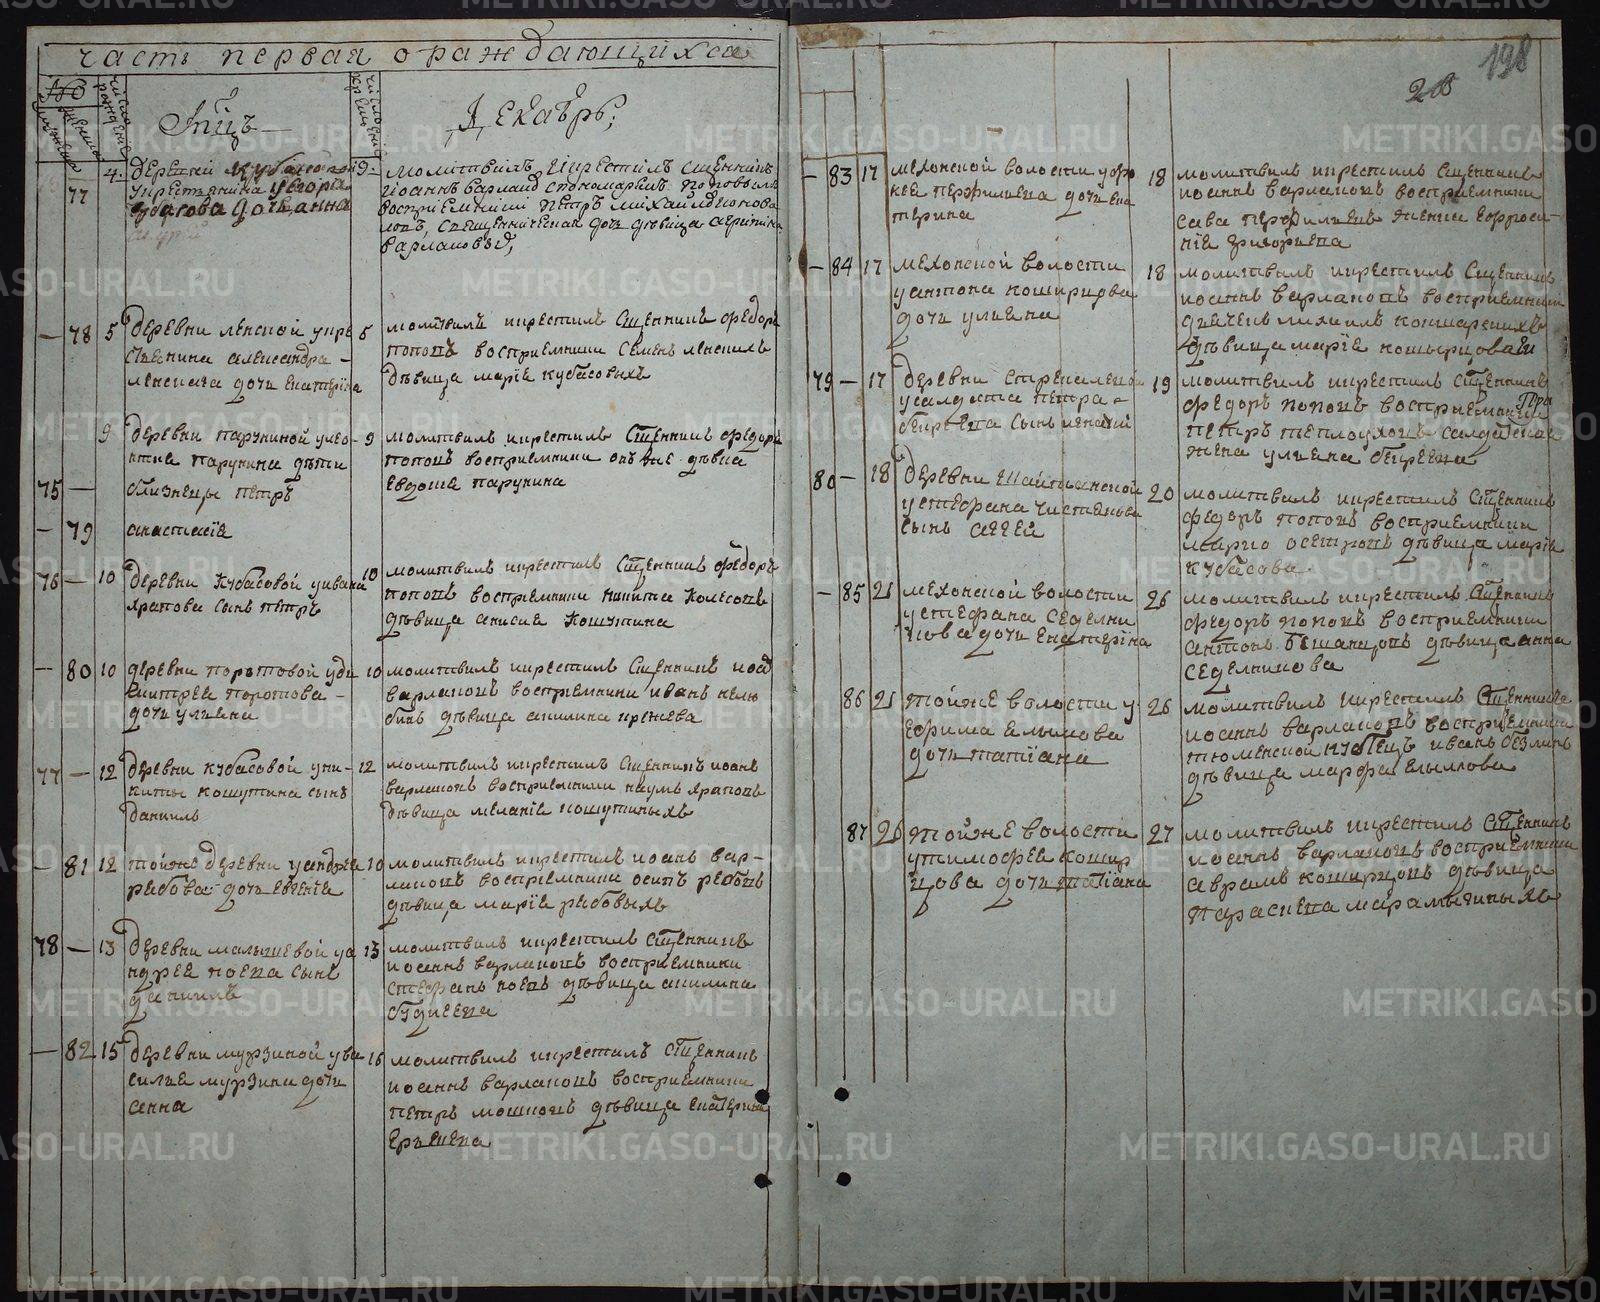 часть первая о раждающихся
№
мужеска
женска
число рожденіе
число крещеніе
Декабрь;
198
208
77 4. деревни Кубасовой
у крестьянина Уегора
Кубасова дочь анна
9. молитвилъ, и крестилъ священникъ
Іоаннъ Варлаковъ с пономаремъ поповымъ
восприемники петръ михайловъ коновалов
священническая дочь дѣвица агрипина
варлаковы,
— 78 5 деревни ленской у кре
стьянина александра
ленскага дочь екатерина
5 молитвилъ и крестилъ Сщенникъ федоръ
поповъ восприемники семенъ ленскихъ
дѣвица маріе кубасовыхъ
9 деревни парукиной у лео-
нтиа парукина дѣти
75 — близнецы петръ
— 79 анастасіе
9 молитвилъ и крестилъ Сщенникъ федоръ
поповъ восприемники онъ же дѣвка
евдокие парукина
76 — 10 деревни Кубасовой у ивана
храпова сынъ петръ
10 молитвилъ и крестилъ Сщенникъ федоръ
поповъ восприемники никита колесовъ
дѣвица анисиа кошутина
— 80 10 деревни поротовой у ди
митреа поротова —
дочь улиана
10 молитвилъ и крестилъ Сщенникъ иоан
варлаковъ восприемники иванъ келю
бинъ дѣвица акилина пражева
77 — 12 деревни кубасовой у ни-
киты кошутина сынъ
даниилъ
12 молитвилъ и крестилъ Сщенникъ иоанъ
варлаковъ восприемники наумъ храповъ
дѣвица меланіе кошутиныхъ
— 81 12 той же деревни у андреа
рябова дочь евгеніе
10 молитвилъ и крестилъ иоанъ вар-
лаковъ восприемники осипъ рябовъ
дѣвица маріе рябовыхъ
78 — 13 деревни малышевой у а
ндреа коева сынъ
даниилъ
13 молитвилъ и крестилъ Сщенникъ
иоаннъ варлаковъ восприемники
стефанъ коевъ дѣвица акилина
авдиеева
— 82 15 деревни мурзиной у ва
силья мурзина дочь
анна
16 молитвилъ и крестилъ Сщенникъ
иоаннъ варлаковъ восприемники
петръ мошковъ дѣвица екатерина
— 83 17 мехонской волости у фо
кеа перфильева дочь ека
терина
18 молитвилъ и крестилъ Сщенникъ
иоаннъ варлаковъ восприемники
сава перфильевъ женка ефроси-
ніе григорьева
— 84 17 мехонской волости
у антона коширцова
дочь улиана
18 молитвилъ и крестилъ Сщенникъ
иоаннъ варлаковъ восприемники
дьячекъ михаилъ кокшарскихъ
дѣвица маріе кошырцова
79 — 17 деревни стрекаленой
у салдата петра
сынъ
19 молитвилъ и крестилъ Сщенникъ
федоръ поповъ восприемники
петръ теплоуховъ салдатская
жена улиана
80 — 18 деревни Шайтанской
у стефана чистакова
сынъ сергей
20 молитвилъ и крестилъ Сщенникъ
федоръ поповъ восприемники
марко осетровъ дѣвица маріе
кубасова
— 85 21 мехонской волости
у стефана седелни
кова дочь екатеріна
26 молитвилъ и крестилъ Сщенникъ
федоръ поповъ восприемники
антонъ дѣвица анна
седелникова
86 21 той же волости у
ефима елыкова
дочь татіана
26 молитвилъ и крестилъ Сщенникъ
иоаннъ варлаковъ восприемники
тюменской купецъ иванъ
дѣвица марфа елыкова
87 26 той же волости
у тимофеа кошир
цова дочь татіана
27 молитвилъ и крестилъ Сщенникъ
иоаннъ варлаковъ восприемники
аврамъ коширцовъ дѣвица
параскева марамыгиныхъ
METRIKI.GASO-URAL.RU